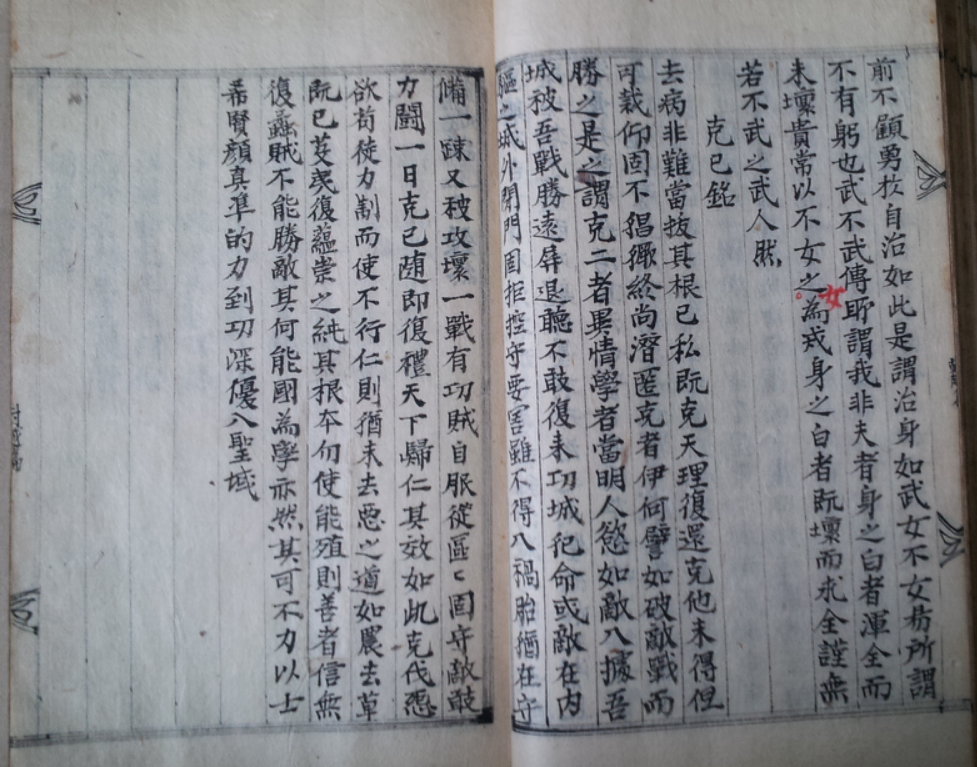 前不顧勇於自治如此是謂治身如武女不女易所謂
不有躬也武不武傳所謂我非夫者身之白者渾全而
未壞貴常以不女之為戒身之白者既壞而求全謹無
女
若不武之武人然
克已銘
去病非難當拔其根已私既克天理復還克他未得但
可裁仰固不猖獗終尚潛匿克者伊何譬如破敵戰而
勝之是之謂克二者異情學者當明人慾如敵入據吾
城被吾戰勝遠屏退聽不敢復来攻城犯命或敵在内
驅之城外閉門固拒控守要害雖不得入禍胎猶在守
備一踈又被攻壞一戰有功賊自服從區〻固守敵敢
力鬪一日克已随即復禮天下歸仁其效如此克伐怨
欲苟徒力制而使不行仁則猶未去惡之道如農去草
既已芟夷復蘊崇之絶其根本勿使能殖則善者信無
復蟊賊不能勝敵其何能國為學亦然其可不力以士
希賢顔真準的力到功深優入聖域